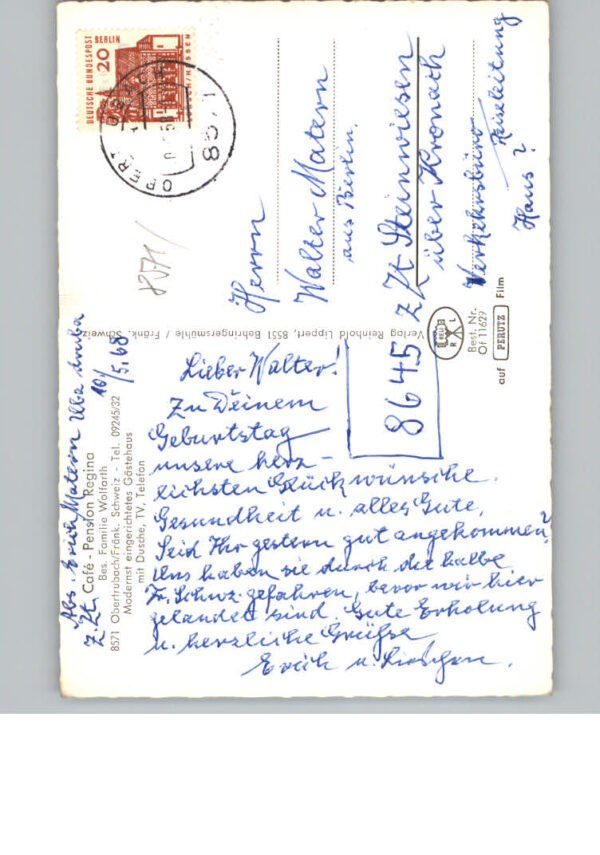 DEUTSCHE BUNDESPOST BERLIN
20
8571
8571
Herrn
Walter Matern
aus Berlin.
z Zt Steinwiesen
über Kronach
Verkehrsbüro
Reiseleitung
Hans ?
8645
Verlag Reinhold Lippert, 8551 Behringersmühle / Fränk. Schweiz
Best. Nr.
Of 11629
auf PERUTZ Film
Abs. Erich Matern
z. Zt. Café - Pension Regina
Bes. Familie Wolfarth
8571 Obertrubach/Fränk. Schweiz - Tel. 09245/32
Modernst eingerichtetes Gästehaus
mit Dusche, TV, Telefon
10/5.68
Lieber Walter!
Zu Deinem
Geburtstag
unsere herz-
lichsten Glückwünsche.
Gesundheit u. alles Gute.
Seid Ihr gestern gut angekommen?
Uns haben sie durch die halbe
Fr. Schwz. gefahren, bevor wir hier
gelandet sind. Gute Erholung
u. herzliche Grüsse
Erich u.